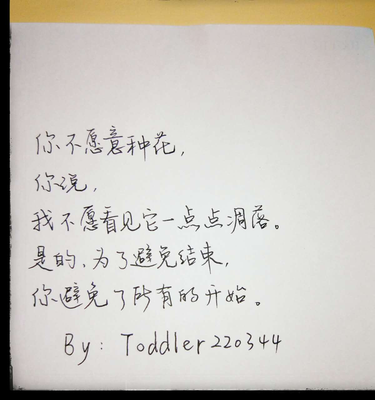 你不愿意种花，
你说，
我不愿看见它一点点凋落。
是的，为了避免结束，
你避免了所有的开始。
By: Toddler220344